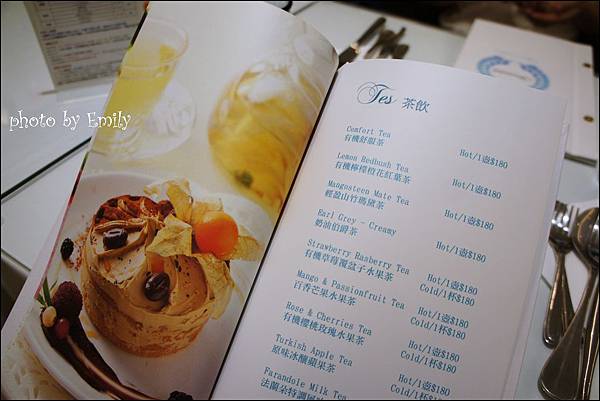 photo by Emily
Tes 茶飲
Comfort Tea
有機舒眼茶
Hot/1壺$180
Lemon Redbush Tea
有機檸檬橙花紅葉茶
Hot/1壺$180
Mangosteen Mate Tea
輕盈山竹瑪黛茶
Hot/1壺$180
Earl Grey - Creamy
奶油伯爵茶
Hot/1壺$180
Strawberry Rasberry Tea
有機草莓覆盆子水果茶
Hot/1壺$180
Cold/1杯$180
Mango & Passionfruit Tea
百香芒果水果茶
Hot/1壺$180
Cold/1杯$180
Rose & Cherries Tea
有機櫻桃玫瑰水果茶
Hot/1壺$180
Cold/1杯$180
Turkish Apple Tea
原味冰釀蘋果茶
Hot/1壺$180
Cold/1杯$180
Farandole Milk Tea
法蘭朵特調風